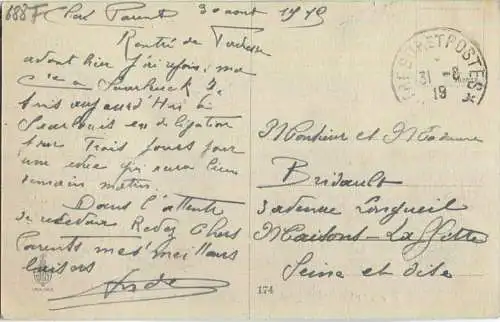 688F
Parent 30 aout 1919
Rentré de
avant hier j'ai rejoins ma
Cie a Saarbruck Je
suis aujourd'Hui à
Saarlouis en délégation
pour Trois Jours pour
une qui aura lieu
demain matin.
Dans l'attente
de Recevez Chers
Parents mes meilleurs
baisers
TRESOR ET POSTES
31 - 8
19
Monsieur et Madame
Bridault
3 avenue Longueil
Maisons-Laffitte
Seine et Oise
174